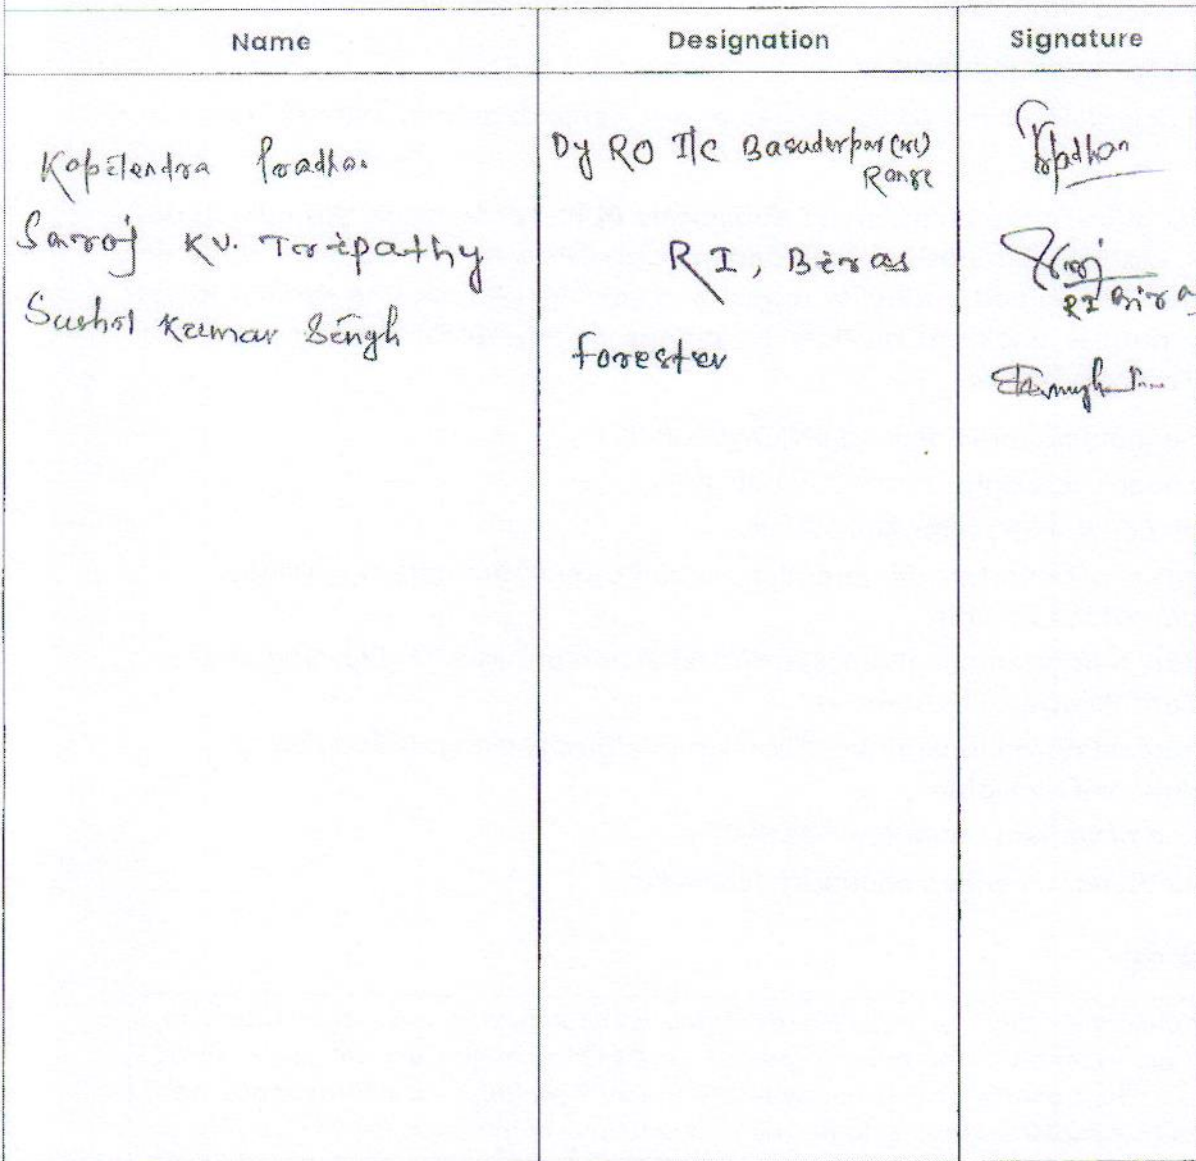 Name Designation Signature
Kapilendra Pradhan Dy RO I/C Basudevpur (WL) Pradhan
Range
Saroj Ku. Tripathy R I, Biras Saroj
RI Biras
Sushil Kumar Singh forester